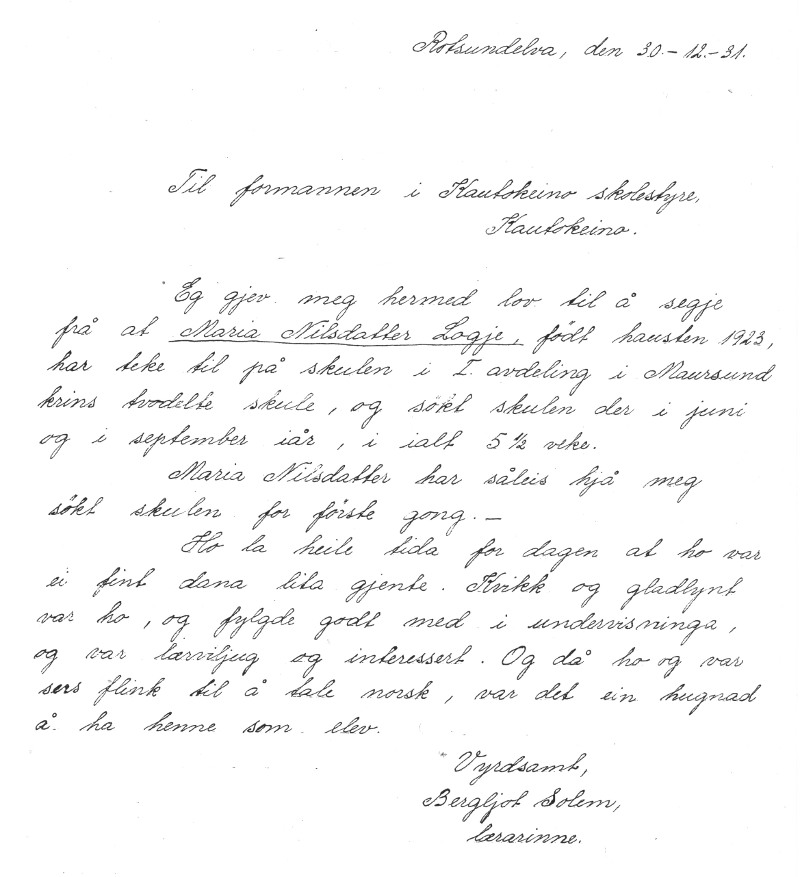 Rotsundelva, den 30.-12.-31.
Til formannen i Kautokeino skolestyre,
Kautokeino.
Eg gjev meg hermed lov til å segje
frå at Maria Nilsdatter Logje, födt hausten 1923,
har teke til på skulen i I. avdeling i Maursund
krins tvodelte skule, og sökt skulen der i juni
og i september iår, i ialt 5 ½ veke.
Maria Nilsdatter har såleis hjå meg
sökt skulen for förste gong. —
Ho la heile tida for dagen at ho var
ei fint dana lita gjente. Kvikk og gladlynt
var ho, og fylgde godt med i undervisninga,
og var lærviljug og interessert. Og då ho og var
sers flink til å tale norsk, var det ein hugnad
å ha henne som elev.
Vyrdsamt,
Bergljot Solem,
lærarinne.